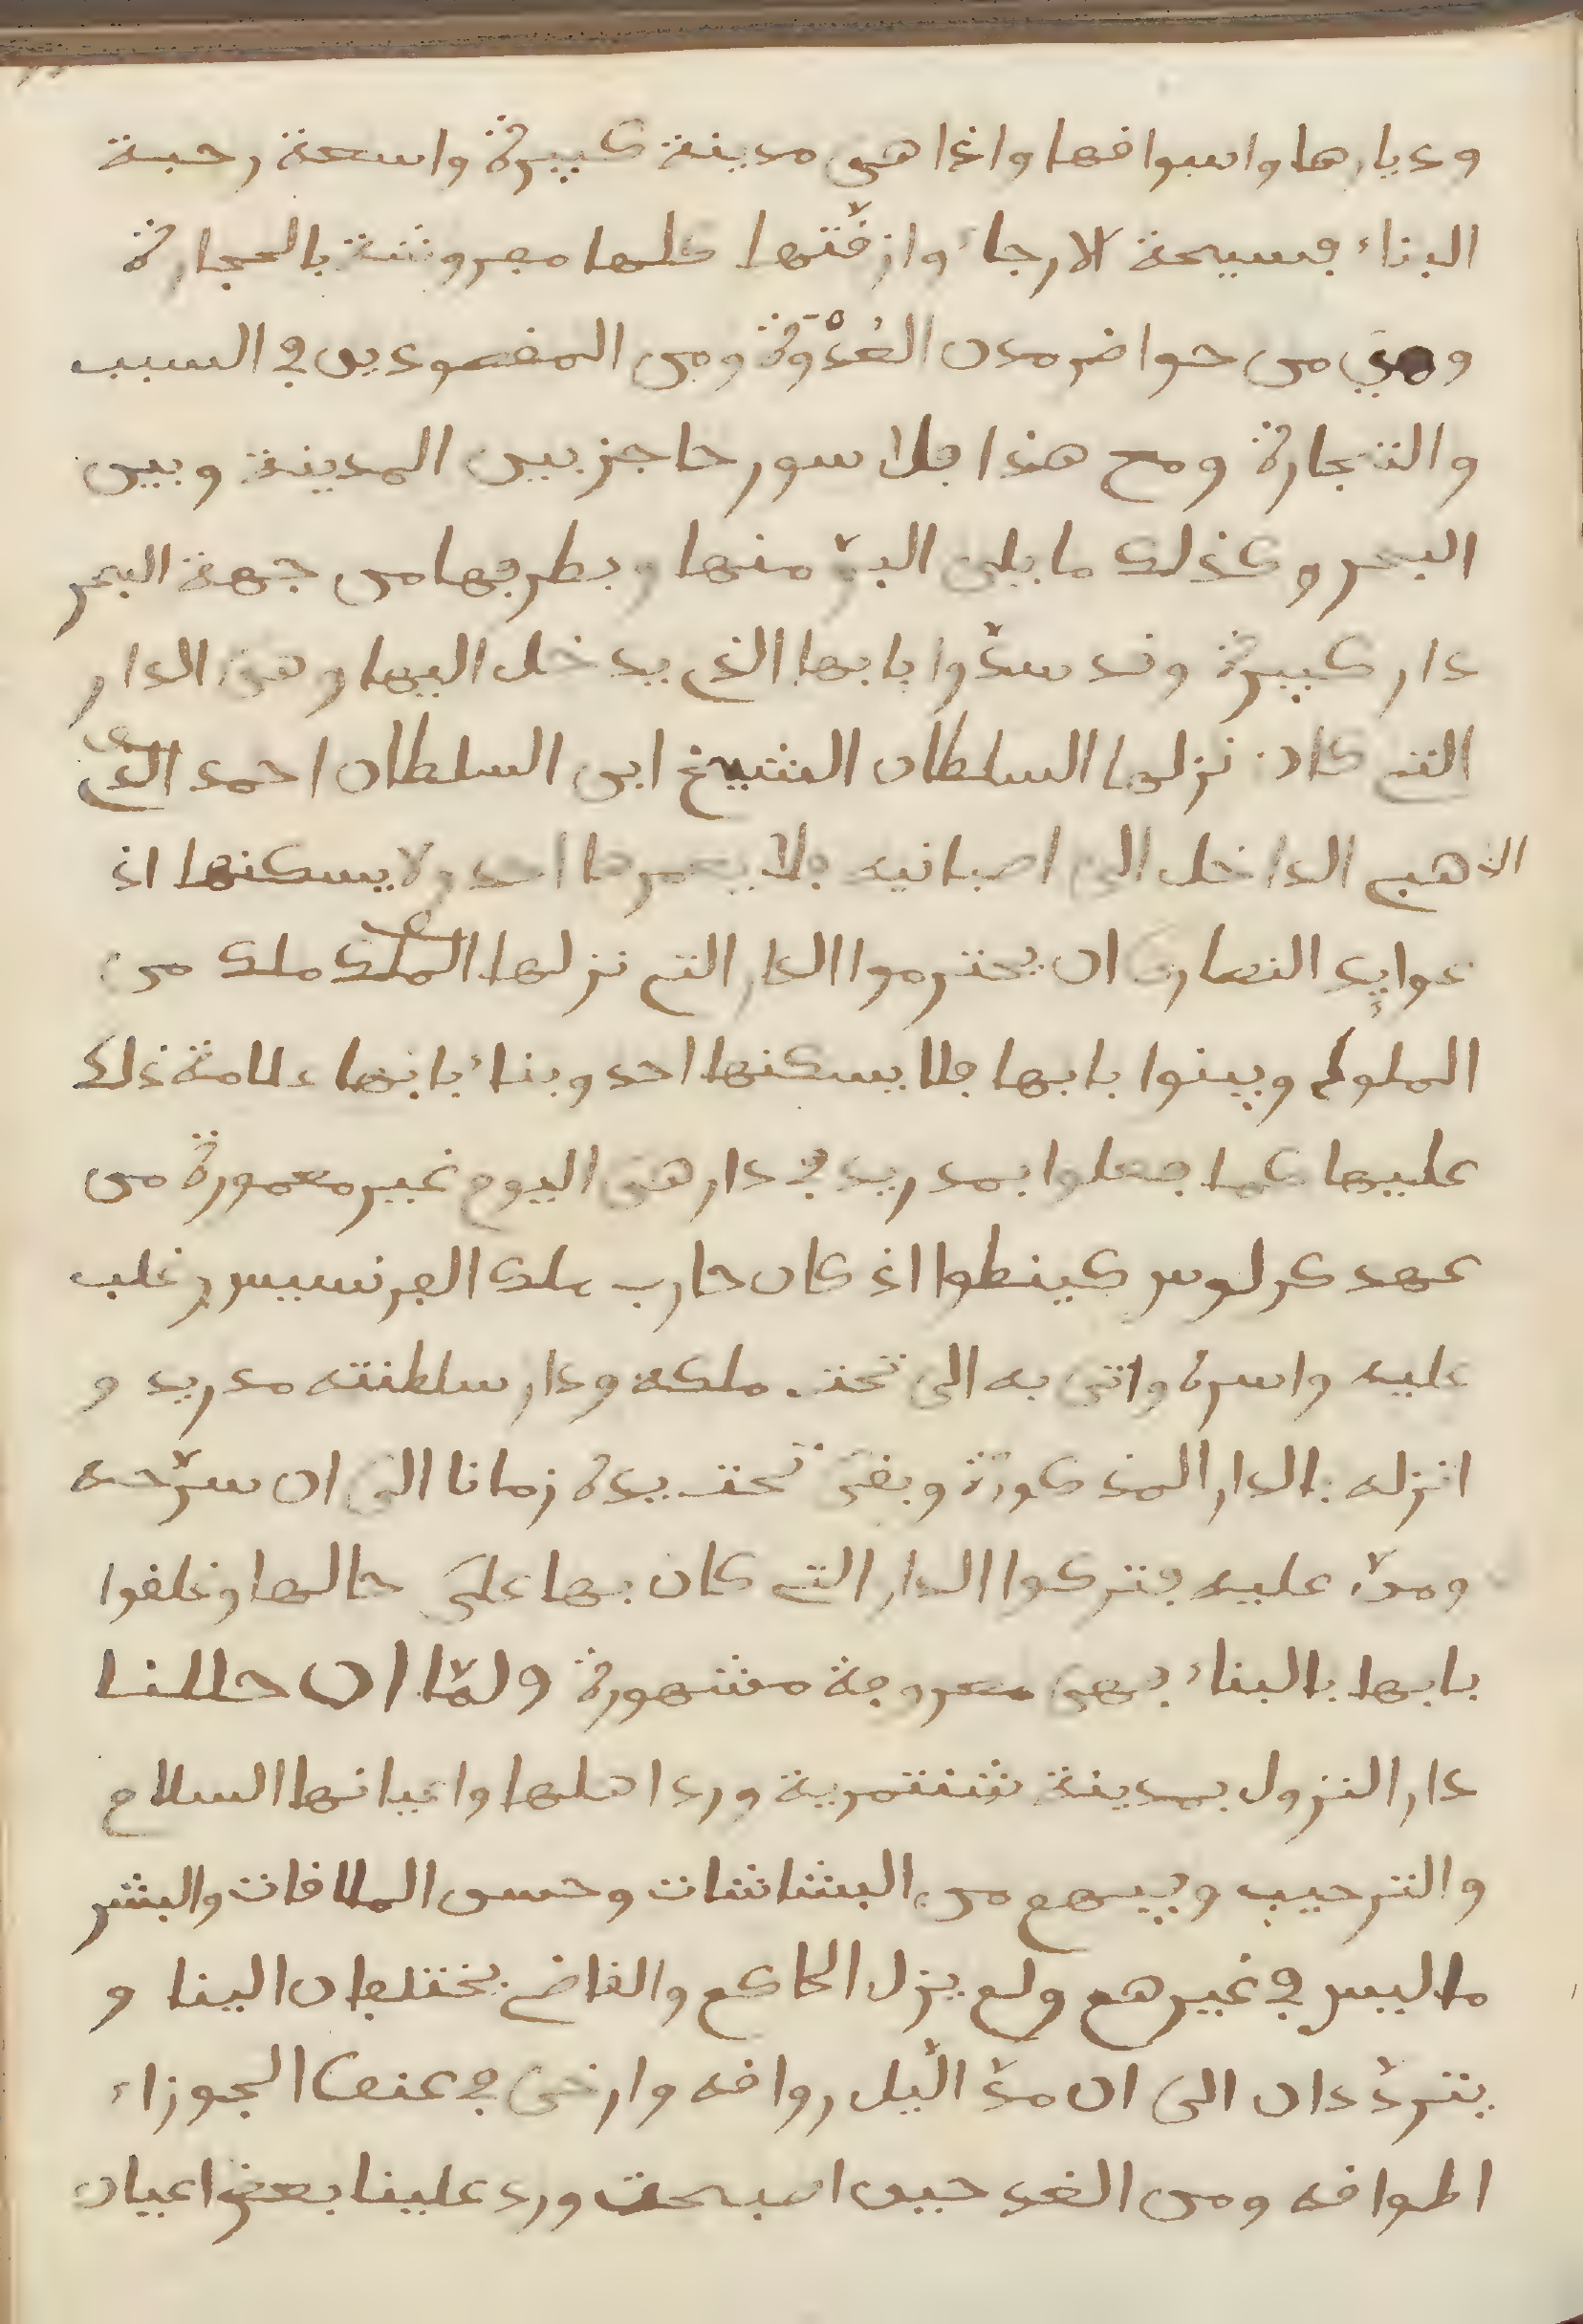 وديارها واسواقها واذا هي مدينة كبيرة واسعة رحبة
البناء فسيحة الارجاء وازقّتها كلها مفروشة بالحجارة
وهي من حواضر مدن العُدْوَة ومن المقصودين في السبب
والتجارة ومع هذا فلا سور حاجز بين المدينة وبين
البحر وكذلك ما يلي البرّ منها وبطرفها من جهة البحر
دار كبيرة وقد سدّوا بابها الذي يدخل اليها وهي الدار
التي كان نزلها السلطان الشيخ ابن السلطان احمد
الذهبي الداخل الى اصبانيه فلا يعمرها احد ولا يسكنها اذ
عوايد النصارى ان يحترموا الدار التي نزلها الملك ملك من
الملوك ويبنوا بابها فلا يسكنها احد وبناء بابها علامة ذلك
عليها كما فعلوا بمدريد في دار هي اليوم غير معمورة من
عهد كرلوس كينطوا اذ كان حارب ملك الفرنسيس وغلب
عليه واسره واتى به الى تخت ملكه ودار سلطنته مدريد و
انزله بالدار المذكورة وبقى تحت يده زمانا الى ان سرّحه
ومنّ عليه فتركوا الدار التي كان بها على حالها وغلقوا
بابها بالبناء فهي معروفة مشهورة ولمّا ان حللنا
دار النزول بمدينة شنتمرية ورد اهلها واعيانها السلام
والترحيب وفيهم من البشاشات وحسن الملاقات والبشر
ما ليس في غيرهم ولم يزل الحاكم والقاضي يختلفان الينا و
يتردّدان الى ان مدّ الّيل رواقه وارخى في عنق الجوزاء
اطواقه ومن الغد حين اصبحت ورد علينا بعض اعيان